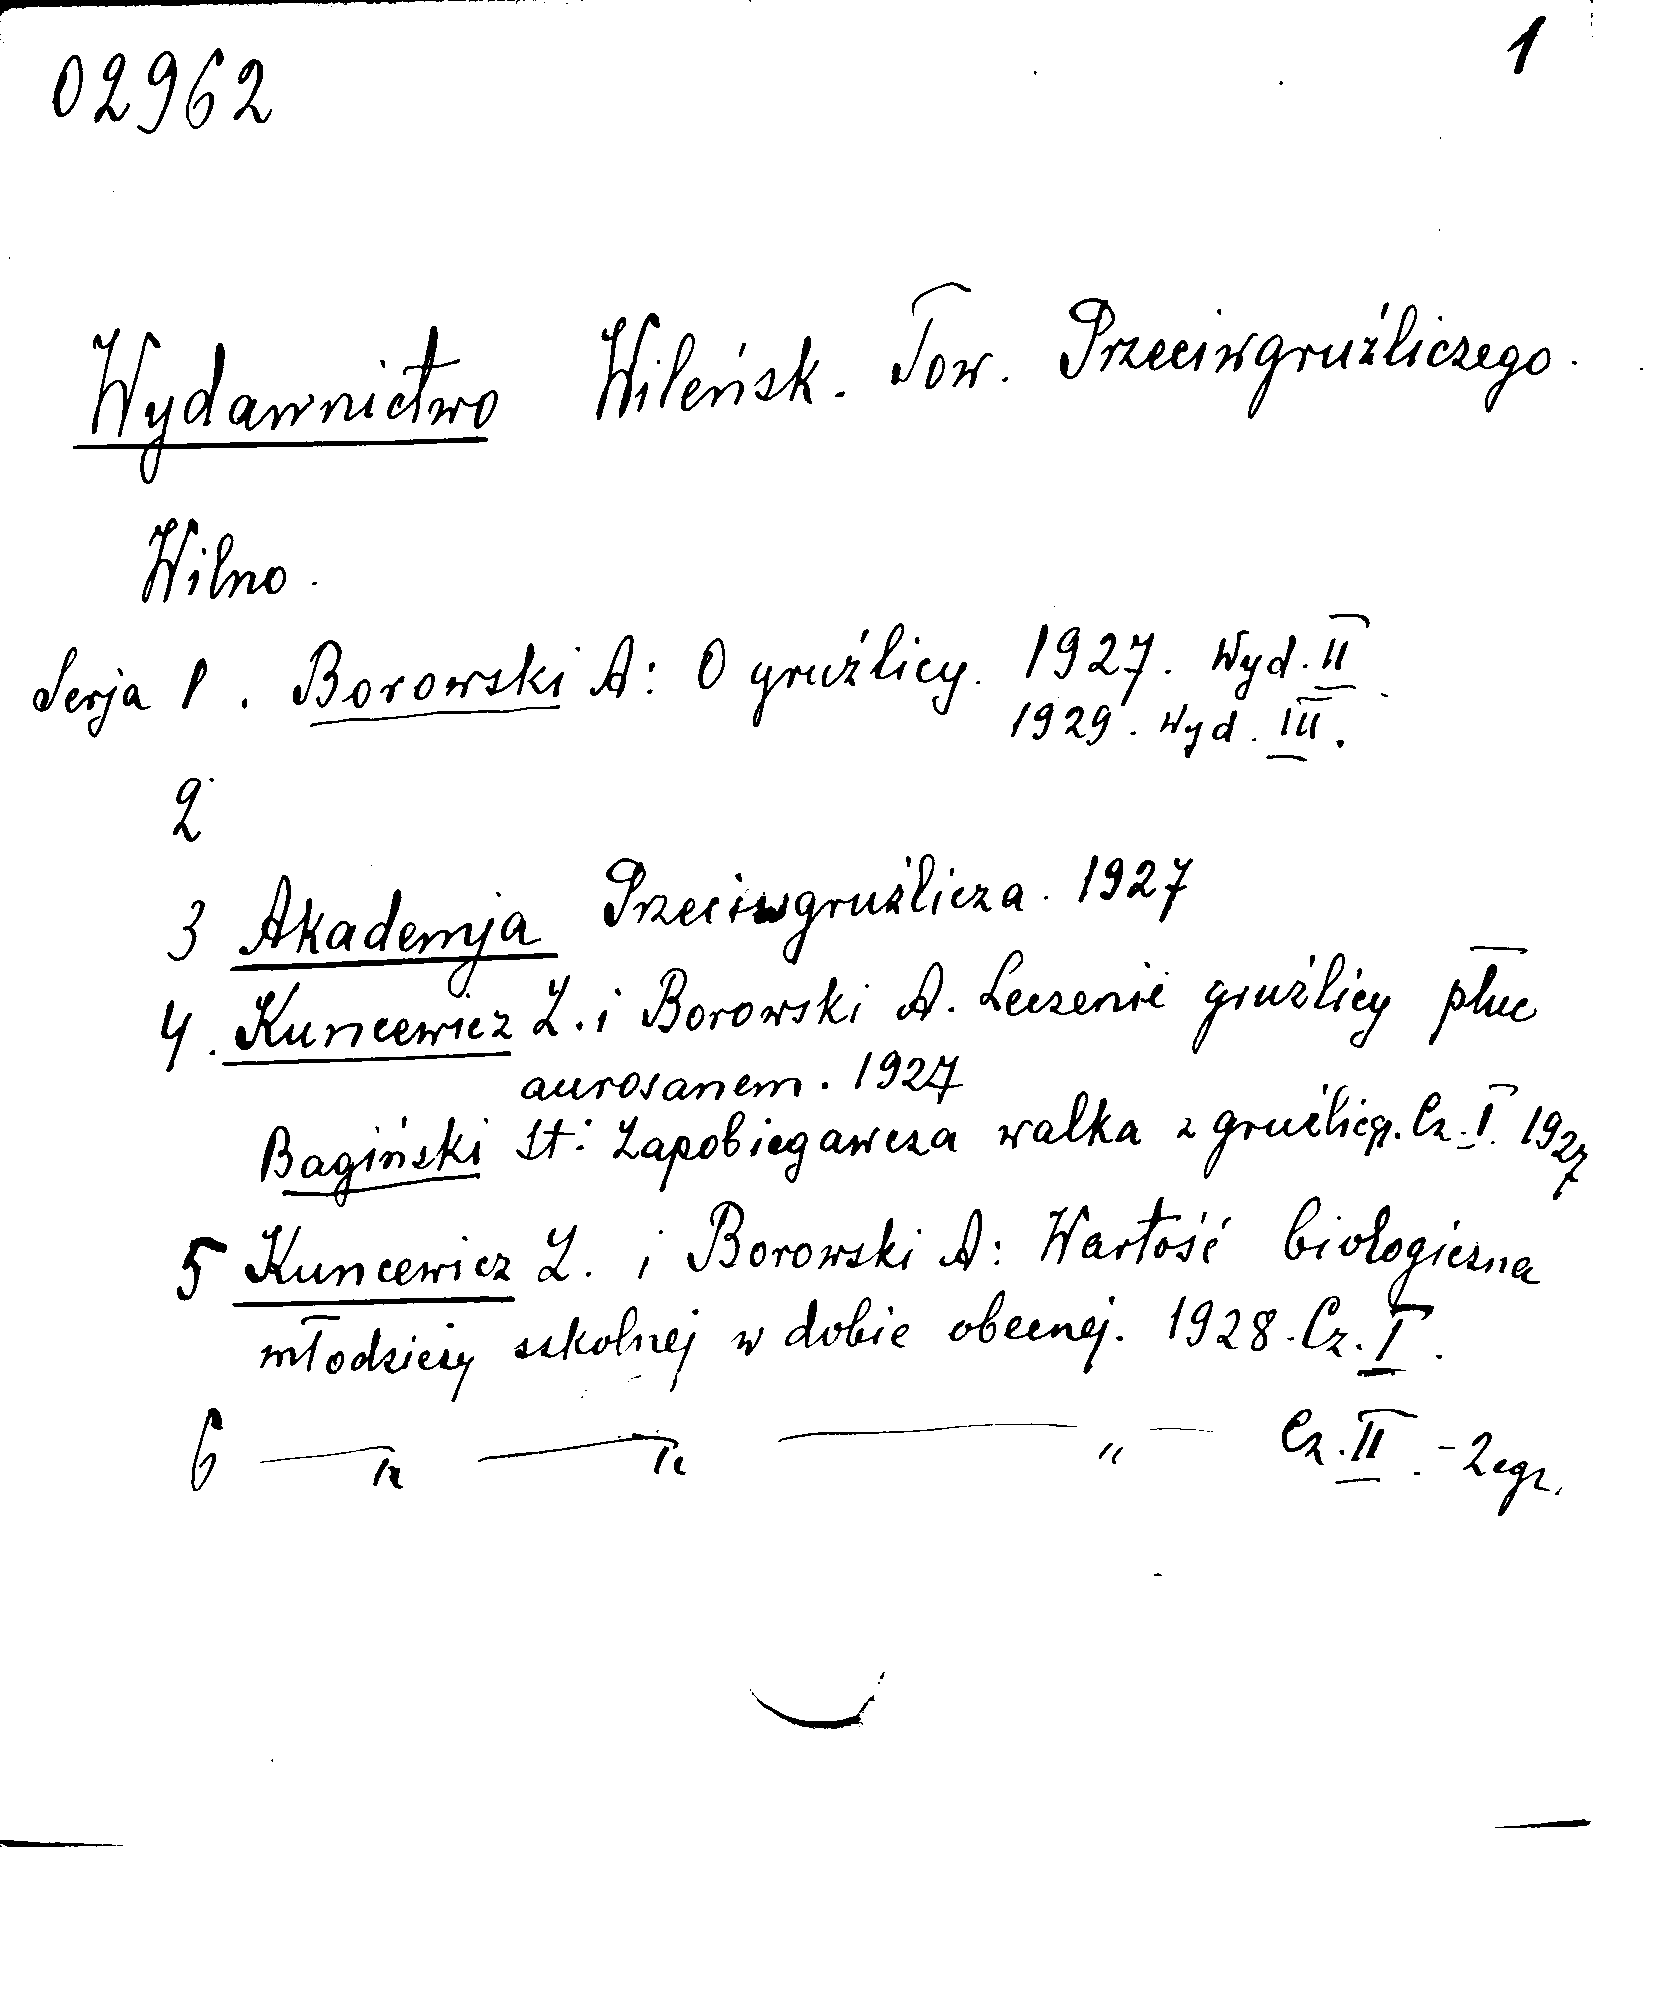 02962
1
Wydawnictwo Wileńsk. Tow. Przeciwgruźliczego.
Wilno.
Serja 1. Borowski A: O gruźlicy. 1927. Wyd. II
1929. Wyd. III.
2
3 Akademja Przeciwgruźlicza. 1927
4. Kuncewicz Z. i Borowski A. Leczenie gruźlicy płuc
aurosanem. 1927
Bagiński St: Zapobiegawcza walka z gruźlicą. Cz. I. 1927
5 Kuncewicz Z. i Borowski A: Wartość biologiczna
młodzieży szkolnej w dobie obecnej. 1928. Cz. I.
6 — " — " — " — Cz. II. - 2 egz.